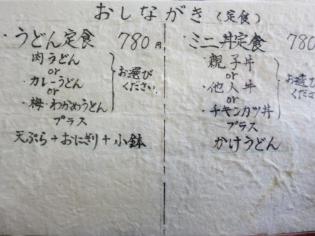 おしながき(定食)
・うどん定食 780円
肉うどん
or
・カレーうどん
or
・梅・わかめうどん
お選びください
プラス
天ぷら+おにぎり+小鉢
・ミニ丼定食 780
親子丼
or
・他人丼
or
・チキンカツ丼
お選びください
プラス
かけうどん